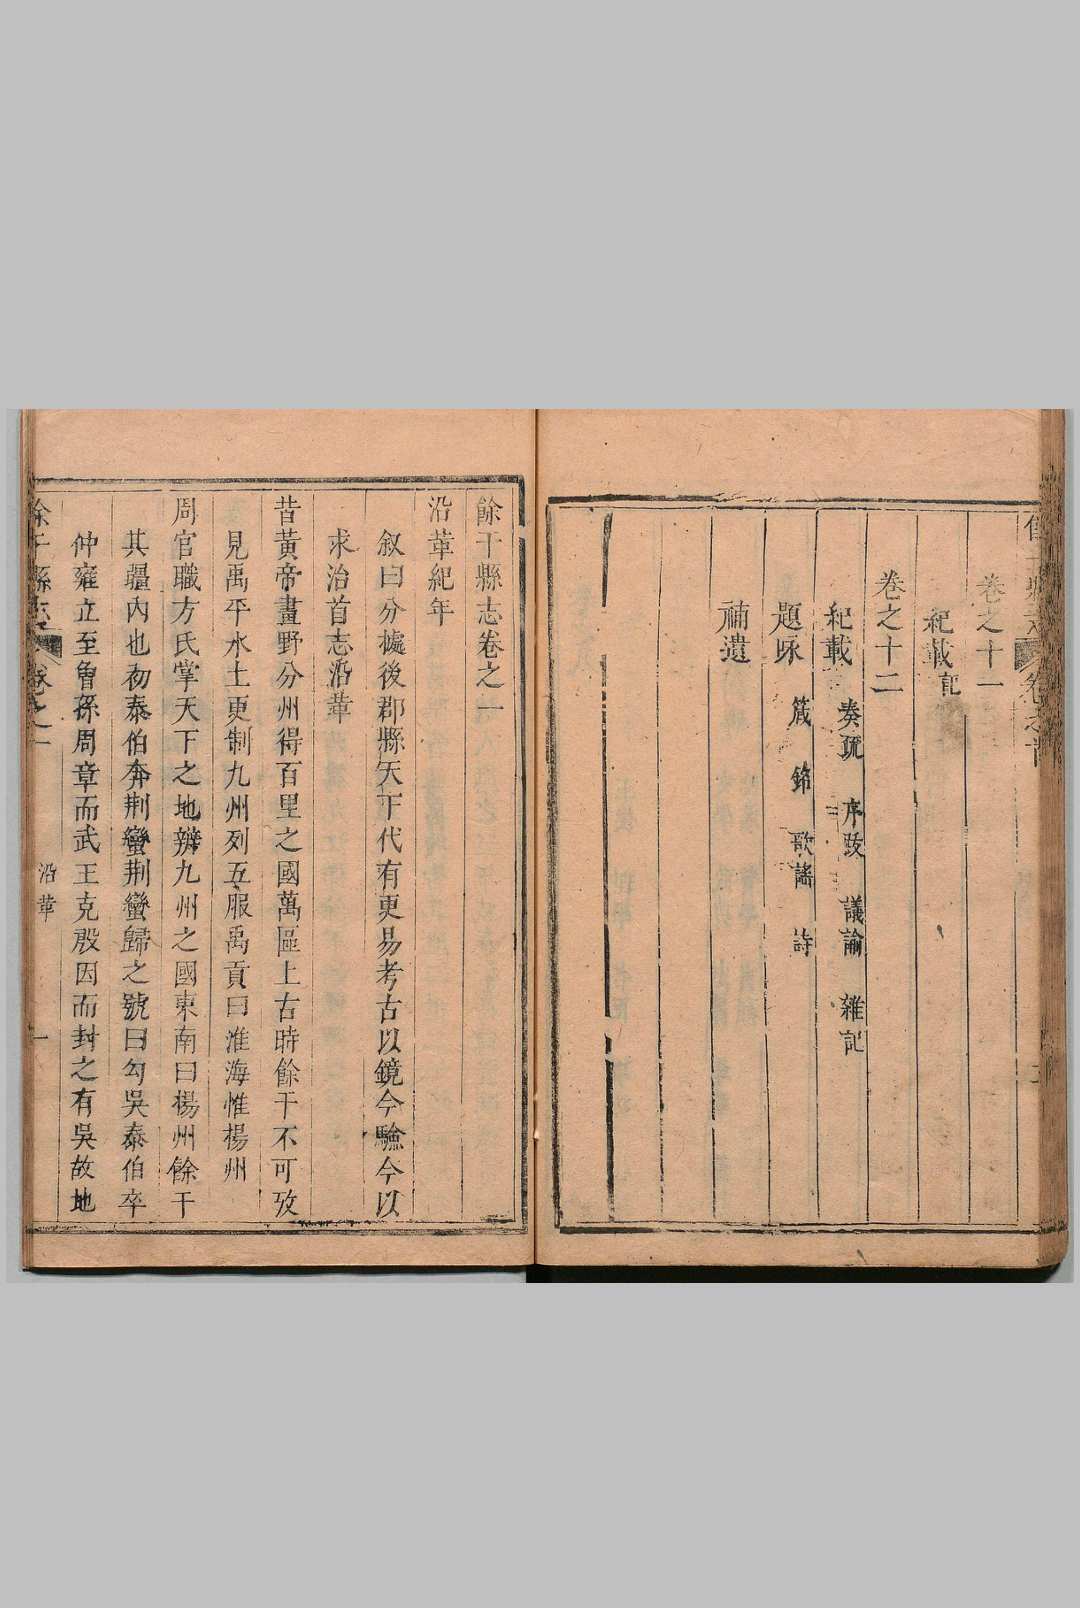 餘干縣志 卷之首
卷之十一
紀載記
卷之十二
紀載 奏疏 序跋 議論 雜記
題咏 箴 銘 歌謠 詩
補遺
餘干縣志卷之一
沿革紀年
叙曰分㨿後郡縣天下代有更易考古以鏡今驗今以
求治首志沿革
昔黃帝畫野分州得百里之國萬區上古時餘干不可攷
見禹平水土更制九州列五服禹貢曰淮海惟楊州
周官職方氏掌天下之地辨九州之國東南曰楊州餘干
其疆内也初泰伯奔荆蠻荆蠻歸之號曰勾吳泰伯卒
仲雍立至曾孫周章而武王克殷因而封之有吳故地
餘干縣志 卷之一 沿革 一